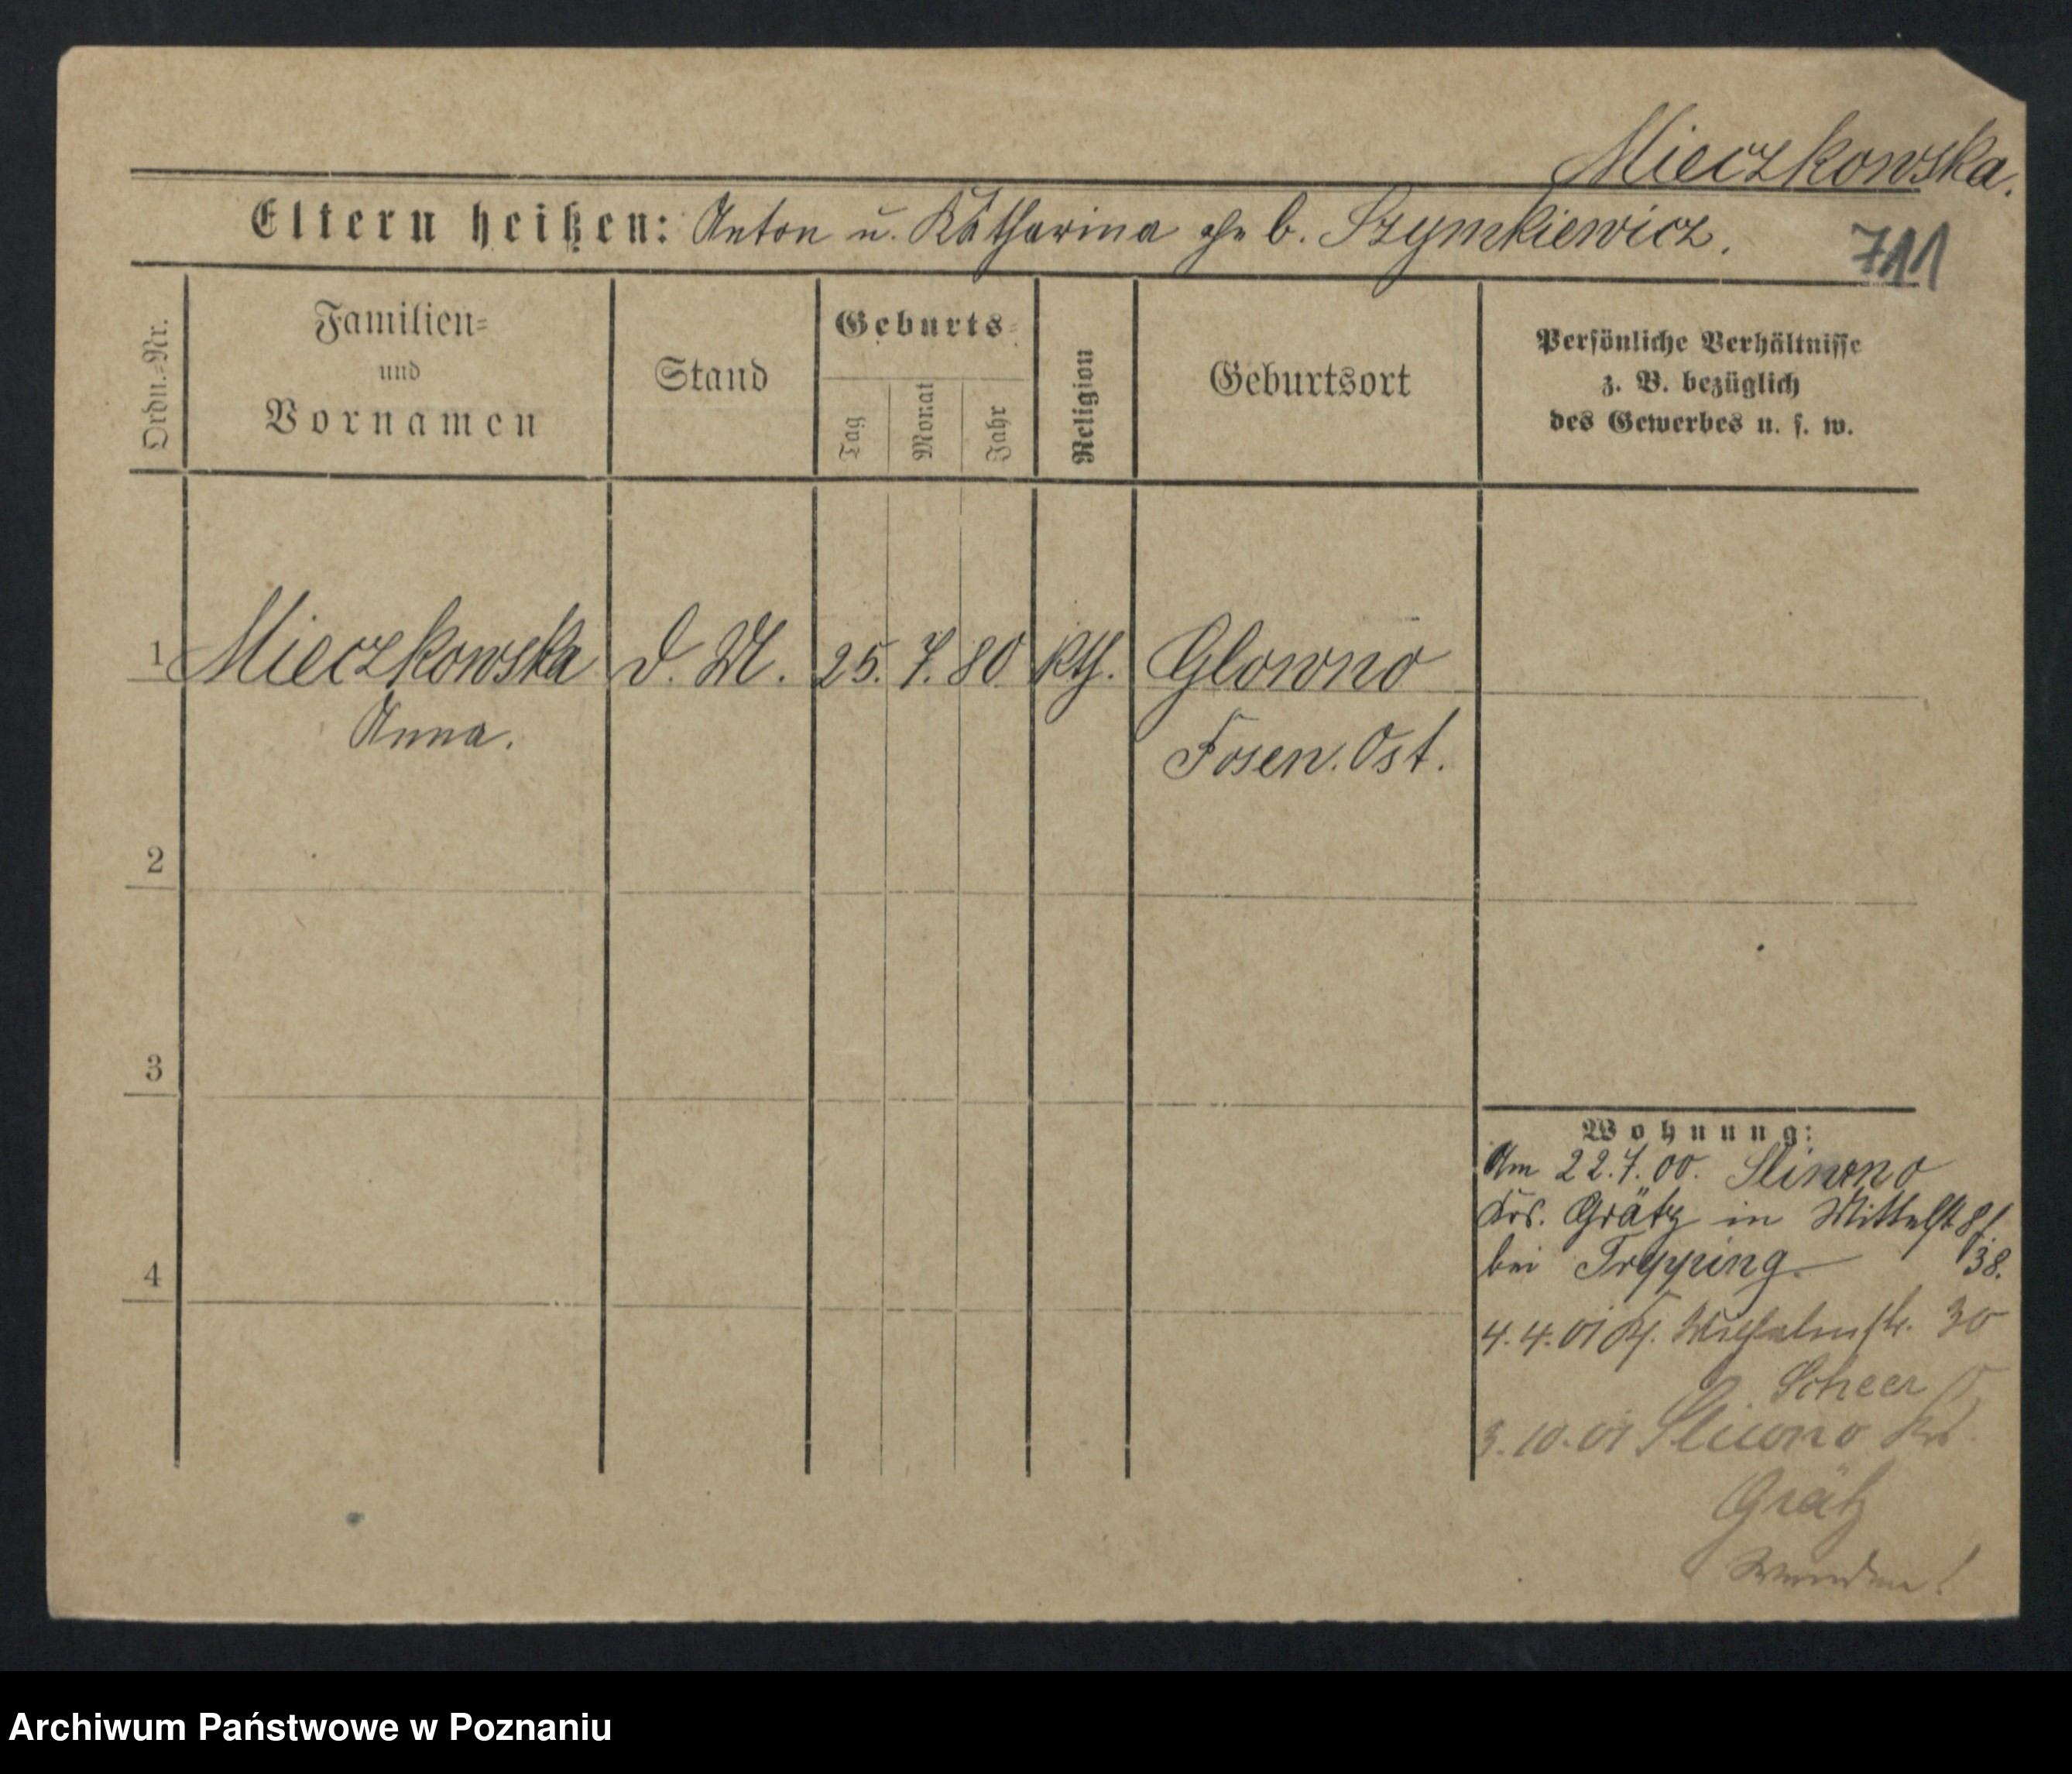 Mieczkowska.
Eltern heißen: Anton u. Katharina geb. Szymkiewicz.
711
Ordn.-Nr.
Familien-
und
Vornamen
Stand
Geburts-
Tag
Monat
Jahr
Religion
Geburtsort
Persönliche Verhältnisse
z. B. bezüglich
des Gewerbes u. s. w.
1 Mieczkowska d. M. 25. 7. 80 kth. Glowno
Anna. Posen. Ost.
2
3
4
Wohnung:
Am 22.7.00. Sliwno
Krs. Grätz in
bei Trepping. 38.
4.4.01 Wilhelmstr. 30
Scheer
3.10.01 Sliwno Krs.
Grätz
Wenden!
Archiwum Państwowe w Poznaniu